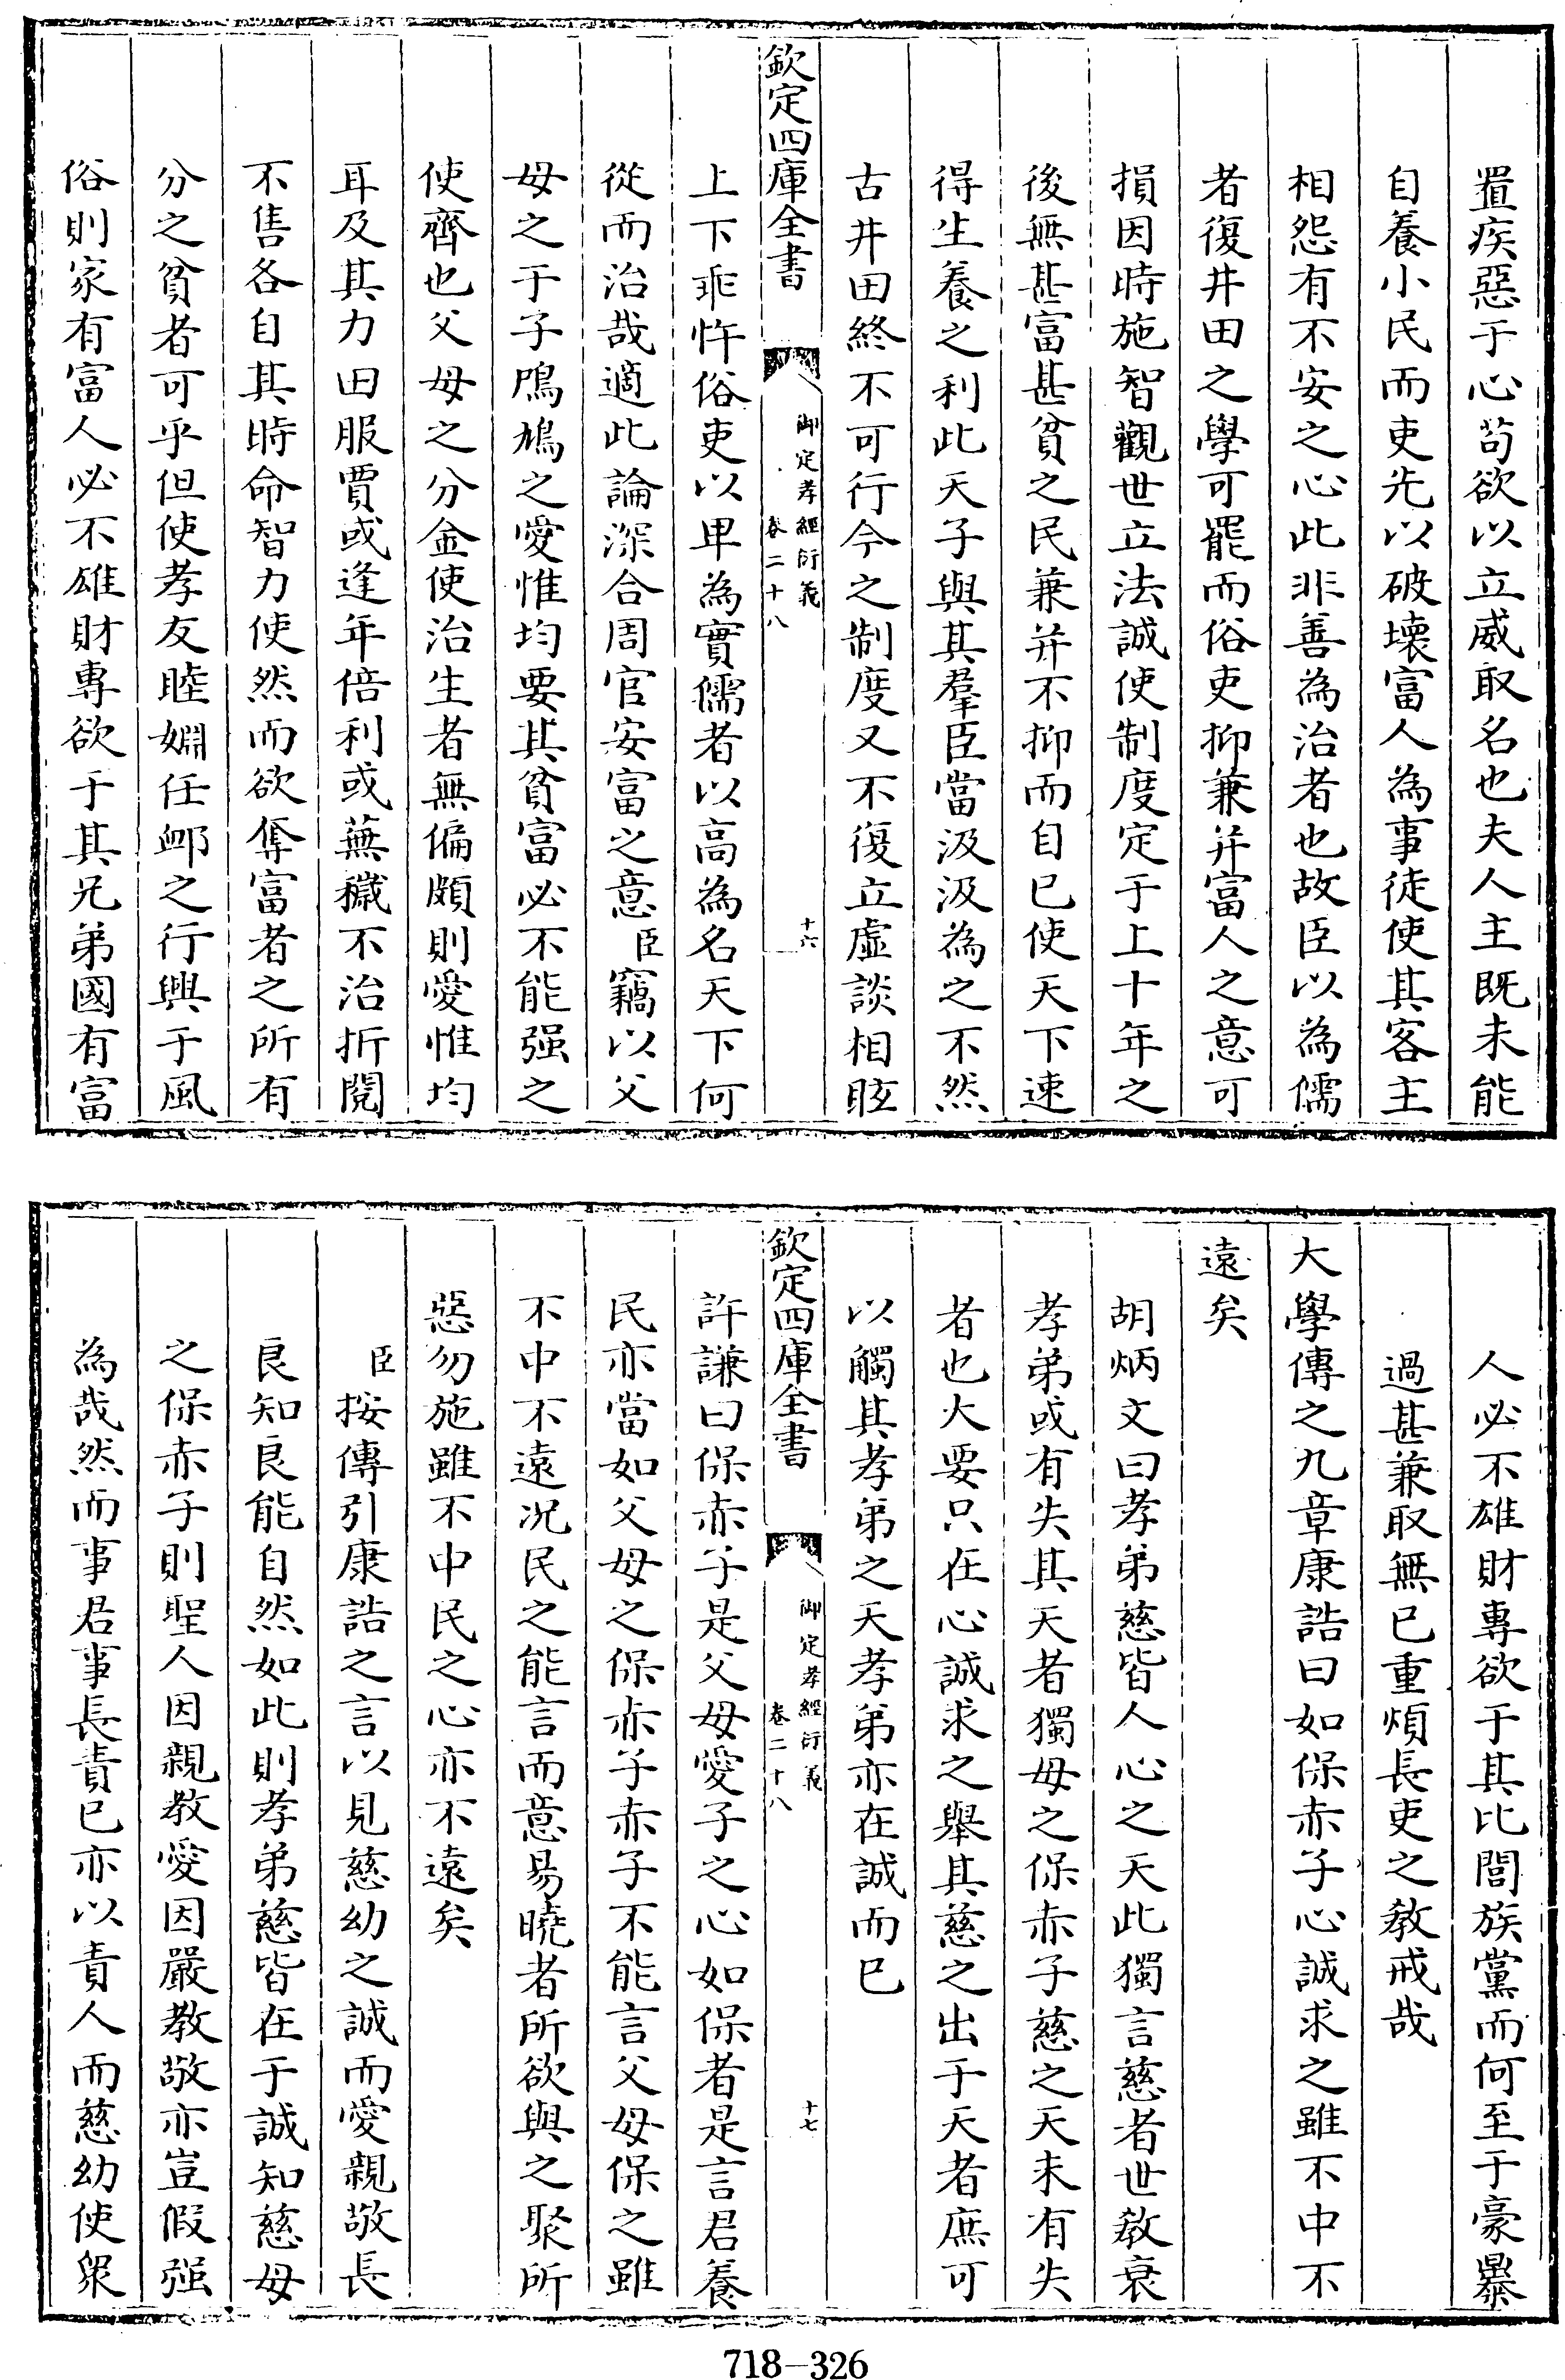 置疾惡于心苟欲以立威取名也夫人主既未能
自養小民而吏先以破壞富人為事徒使其客主
相怨有不安之心此非善為治者也故臣以為儒
者復井田之學可罷而俗吏抑兼并富人之意可
損因時施智觀世立法誠使制度定于上十年之
後無甚富甚貧之民兼并不抑而自已使天下速
得生養之利此天子與其羣臣當汲汲為之不然
古井田終不可行今之制度又不復立虛談相眩
欽定四庫全書
御定孝經衍義
卷二十八
十六
上下乖忤俗吏以卑為實儒者以高為名天下何
從而治哉適此論深合周官安富之意臣竊以父
母之于子鳲鳩之愛惟均要其貧富必不能强之
使齊也父母之分金使治生者無偏頗則愛惟均
耳及其力田服賈或逢年倍利或蕪穢不治折閱
不售各自其時命智力使然而欲奪富者之所有
分之貧者可乎但使孝友睦婣任卹之行興于風
俗則家有富人必不雄財專欲于其兄弟國有富
人必不雄財專欲于其比閭族黨而何至于豪暴
過甚兼取無已重煩長吏之教戒哉
大學傳之九章康誥曰如保赤子心誠求之雖不中不
遠矣
胡炳文曰孝弟慈皆人心之天此獨言慈者世教衰
孝弟或有失其天者獨母之保赤子慈之天未有失
者也大要只在心誠求之舉其慈之出于天者庶可
以觸其孝弟之天孝弟亦在誠而已
欽定四庫全書
御定孝經衍義
卷二十八
十七
許謙曰保赤子是父母愛子之心如保者是言君養
民亦當如父母之保赤子赤子不能言父母保之雖
不中不遠况民之能言而意易曉者所欲與之聚所
惡勿施雖不中民之心亦不遠矣
臣按傳引康誥之言以見慈幼之誠而愛親敬長
良知良能自然如此則孝弟慈皆在于誠知慈母
之保赤子則聖人因親教愛因嚴教敬亦豈假强
為哉然而事君事長責已亦以責人而慈幼使衆
718-326